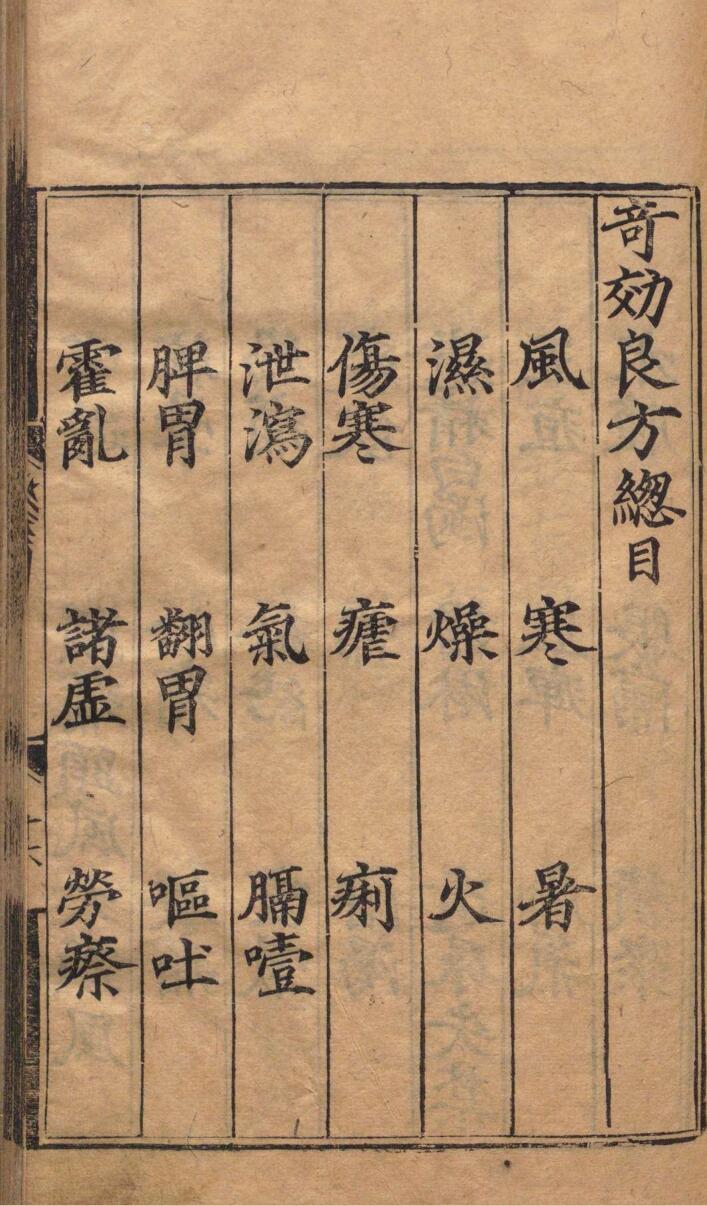 奇効良方緫目
風　寒　暑
濕　燥　火
傷寒　瘧　痢
泄瀉　氣　膈噎
脾胃　翻胃　嘔吐
霍亂　諸虛　勞瘵